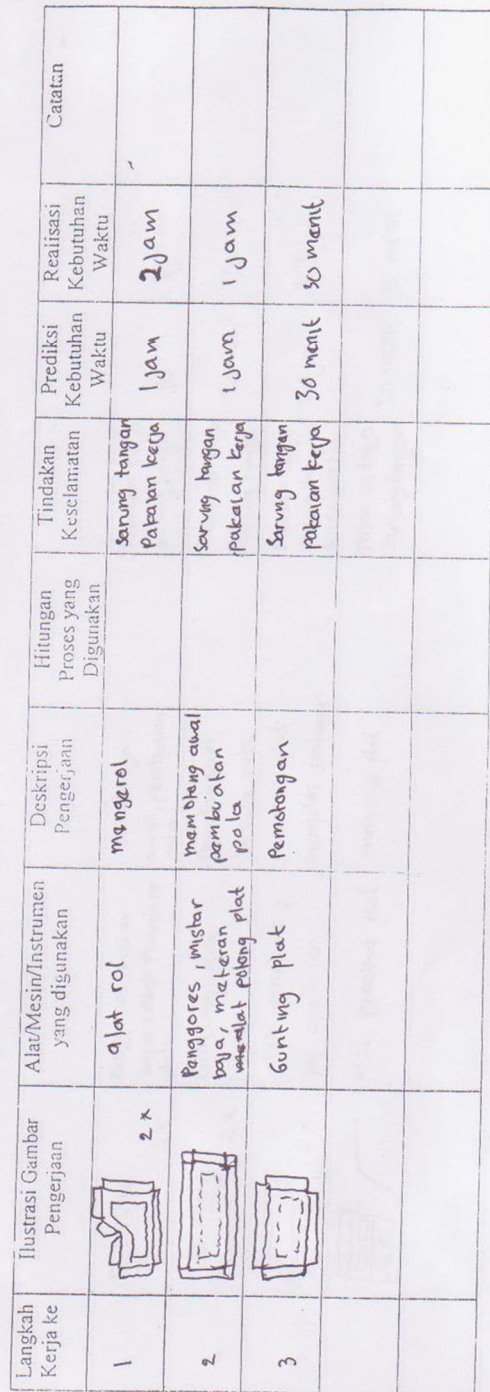 Langkah
Kerja ke
Ilustrasi Gambar
Pengerjaan
Alat/Mesin/Instrumen
yang digunakan
Deskripsi
Pengerjaan
Hitungan
Proses yang
Digunakan
Tindakan
Keselamatan
Prediksi
Kebutuhan
Waktu
Realisasi
Kebutuhan
Waktu
Catatan
1
2 x
alat rol
mengerol
sarung tangan
Pakaian kerja
1 jam
2 jam
2
Penggores, mistar
baja, meteran
alat potong plat
memotong awal
pembuatan
pola
sarung tangan
pakaian kerja
1 jam
1 jam
3
Gunting plat
Pemotongan
Sarung tangan
pakaian kerja
30 menit
30 menit